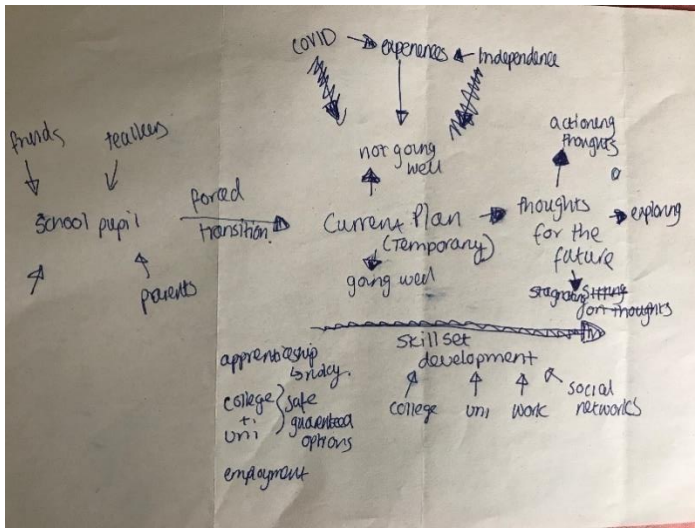 COVID experiences Independence
friends
teachers
not going
well
actioning
thoughts
School pupil
forced
transition
Current Plan
(Temporary)
thoughts
for the
future
exploring
parents
going well
stagnating sitting
on thoughts
skill set
development
apprenticeship
↳ risky.
college
+
uni
safe
guaranteed
options
employment
college uni work social
networks